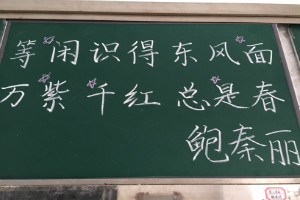 等闲识得东风面
万紫千红总是春
鲍秦丽